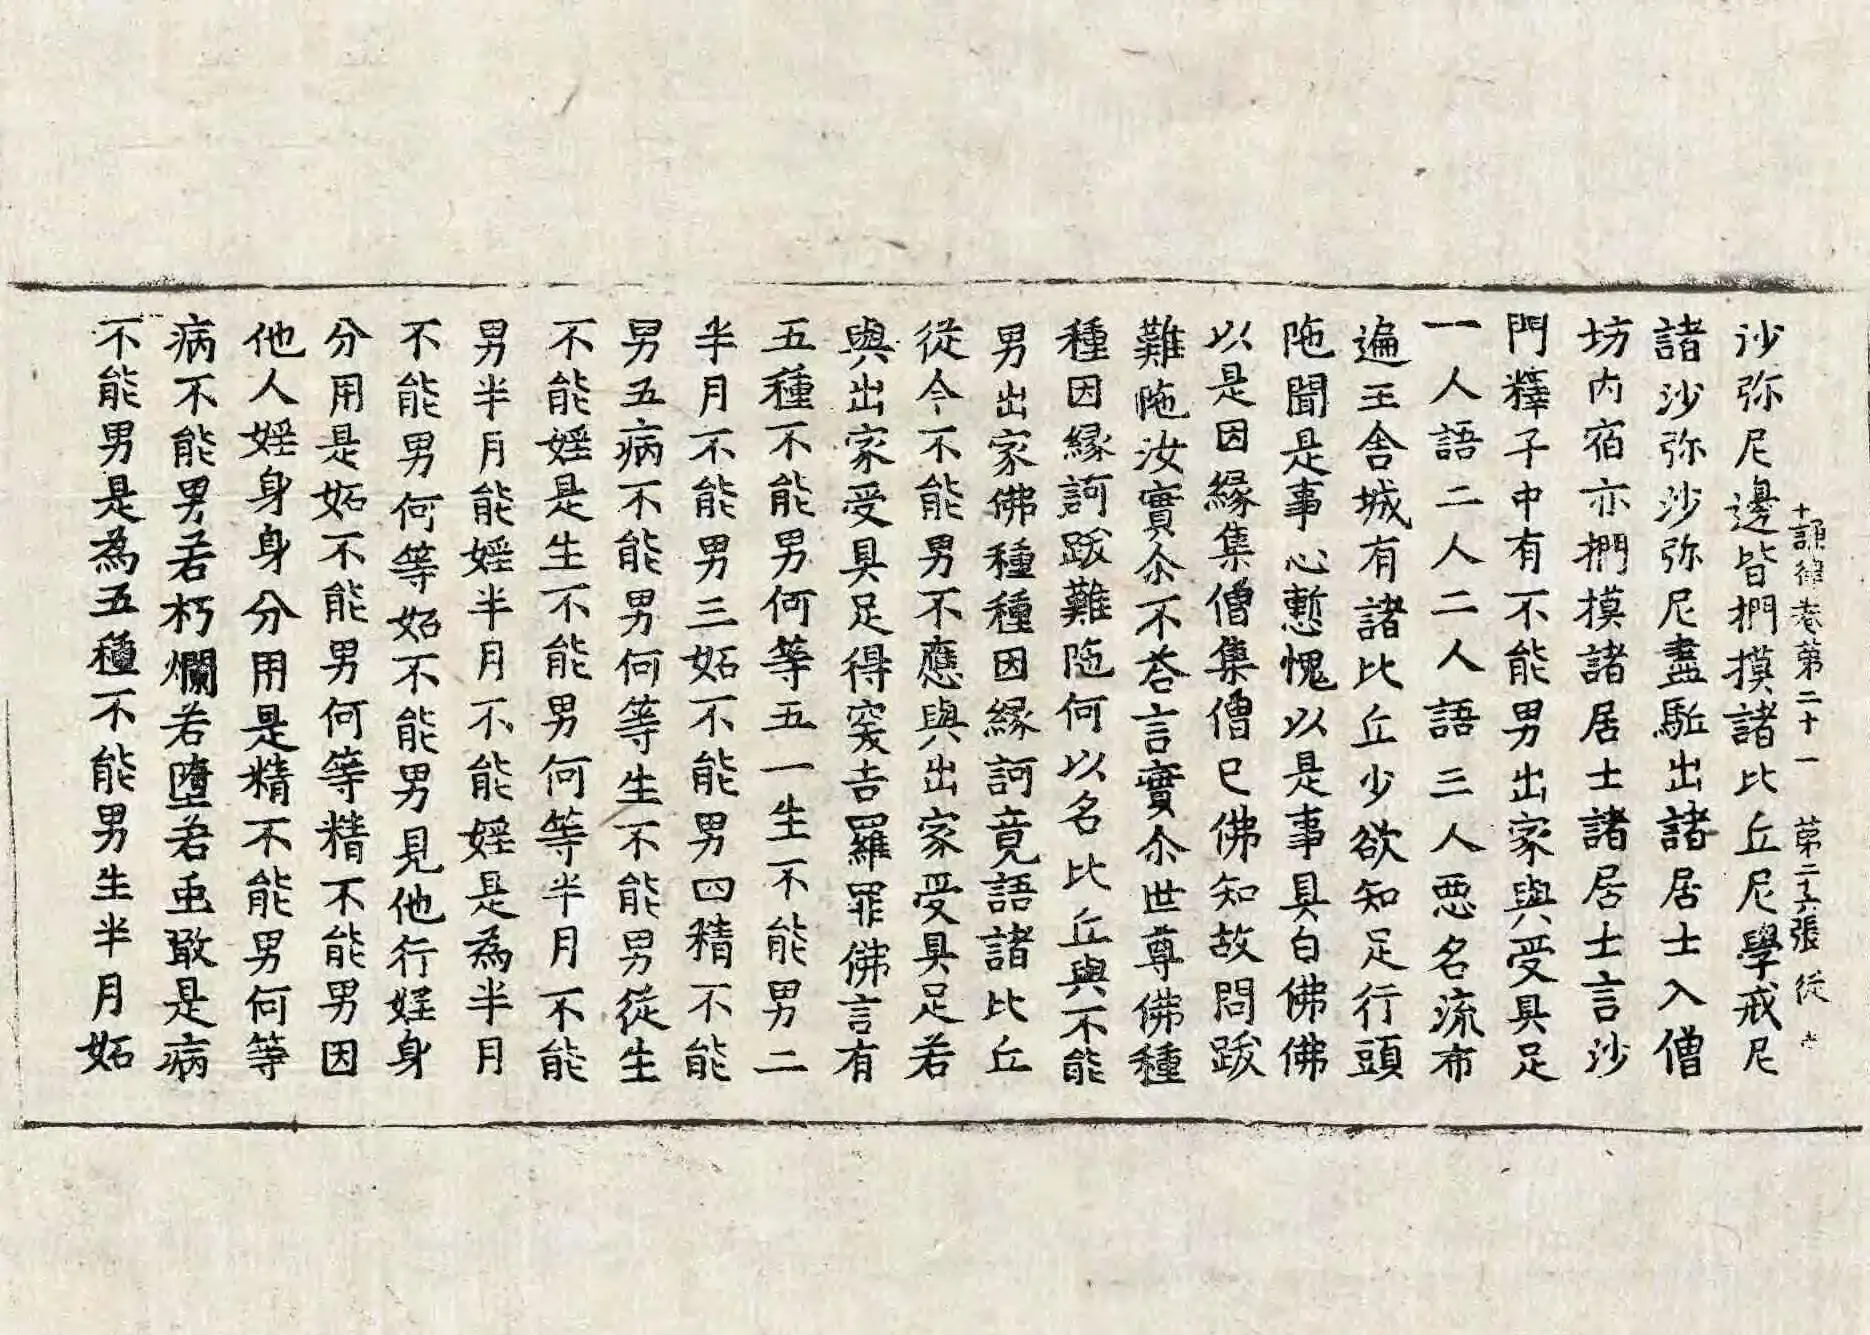 十誦律卷第二十一 第二十六張 従
沙弥尼邊皆捫摸諸比丘尼學戒尼
諸沙弥沙弥尼盡駈出諸居士入僧
坊內宿亦捫摸諸居士諸居士言沙
門釋子中有不能男出家與受具足
一人語二人二人語三人惡名流布
遍王舍城有諸比丘少欲知足行頭
陁聞是事心慙愧以是事具白佛佛
以是因緣集僧集僧已佛知故問跋
難陁汝實尒不荅言實尒世尊佛種
種因緣訶跋難陁何以名比丘與不能
男出家佛種種因緣訶竟語諸比丘
從今不能男不應與出家受具足若
與出家受具足得突吉羅罪佛言有
五種不能男何等五一生不能男二
半月不能男三妬不能男四精不能
男五病不能男何等生不能男從生
不能婬是生不能男何等半月不能
男半月能婬半月不能婬是為半月
不能男何等妬不能男見他行婬身
分用是妬不能男何等精不能男因
他人婬身身分用是精不能男何等
病不能男若朽爛若墮若䖝噉是病
不能男是為五種不能男生半月妬